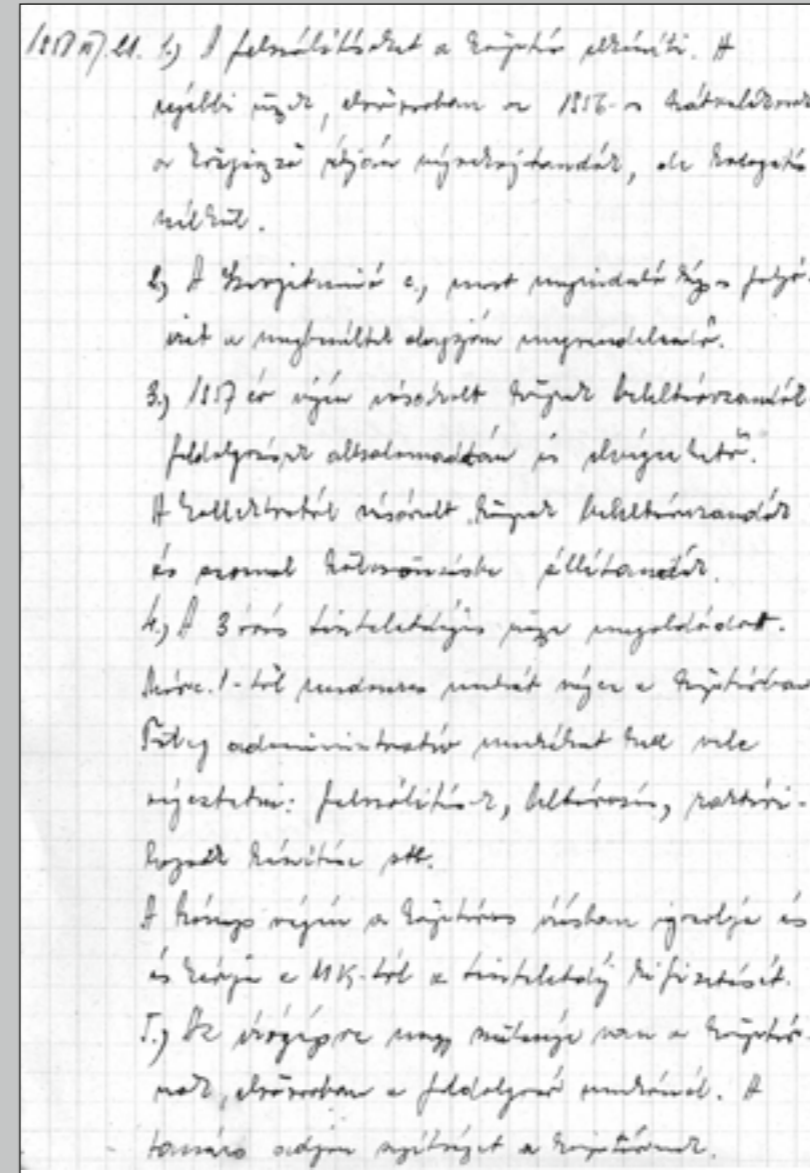 1957 IV. 21. 1.) A felszólításokat a könyvtár elkészíti. A
régebbi ügyek, elsősorban az 1956-os hátralékosok
a közjegyző útján végrehajtandók, de
nélkül.
2.) A c., most meginduló folyó-
irat a alapján megrendelendő.
3.) 1957 év végén vásárolt könyvek beleltározandók
feldolgozásuk is elvégezhető.
A vásárolt könyvek beleltározandók
és azonnal kölcsönzésbe állítandók.
4.) A 3 órás tiszteletdíjas ügye megoldódott.
1-től rendszeres munkát végez a könyvtárban
Főleg adminisztratív munkákat kell vele
végeztetni: felszólítások, leltározás, raktári-
készítése stb.
A hónap végén a könyvtáros írásban igazolja és
és kérje a MK-tól a tiszteletdíj kifizetését.
5.) Az írógépre nagy szüksége van a könyvtár-
nak, elsősorban a feldolgozó munkánál. A
adjon segítséget a könyvtárnak.